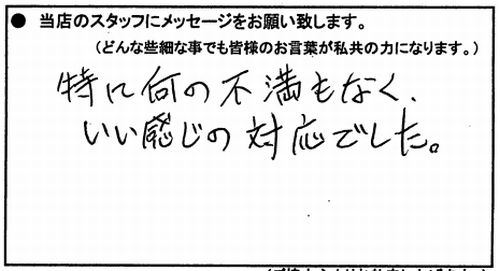 ● 当店のスタッフにメッセージをお願い致します。
（どんな些細な事でも皆様のお言葉が私共の力になります。）
特に何の不満もなく、
いい感じの対応でした。